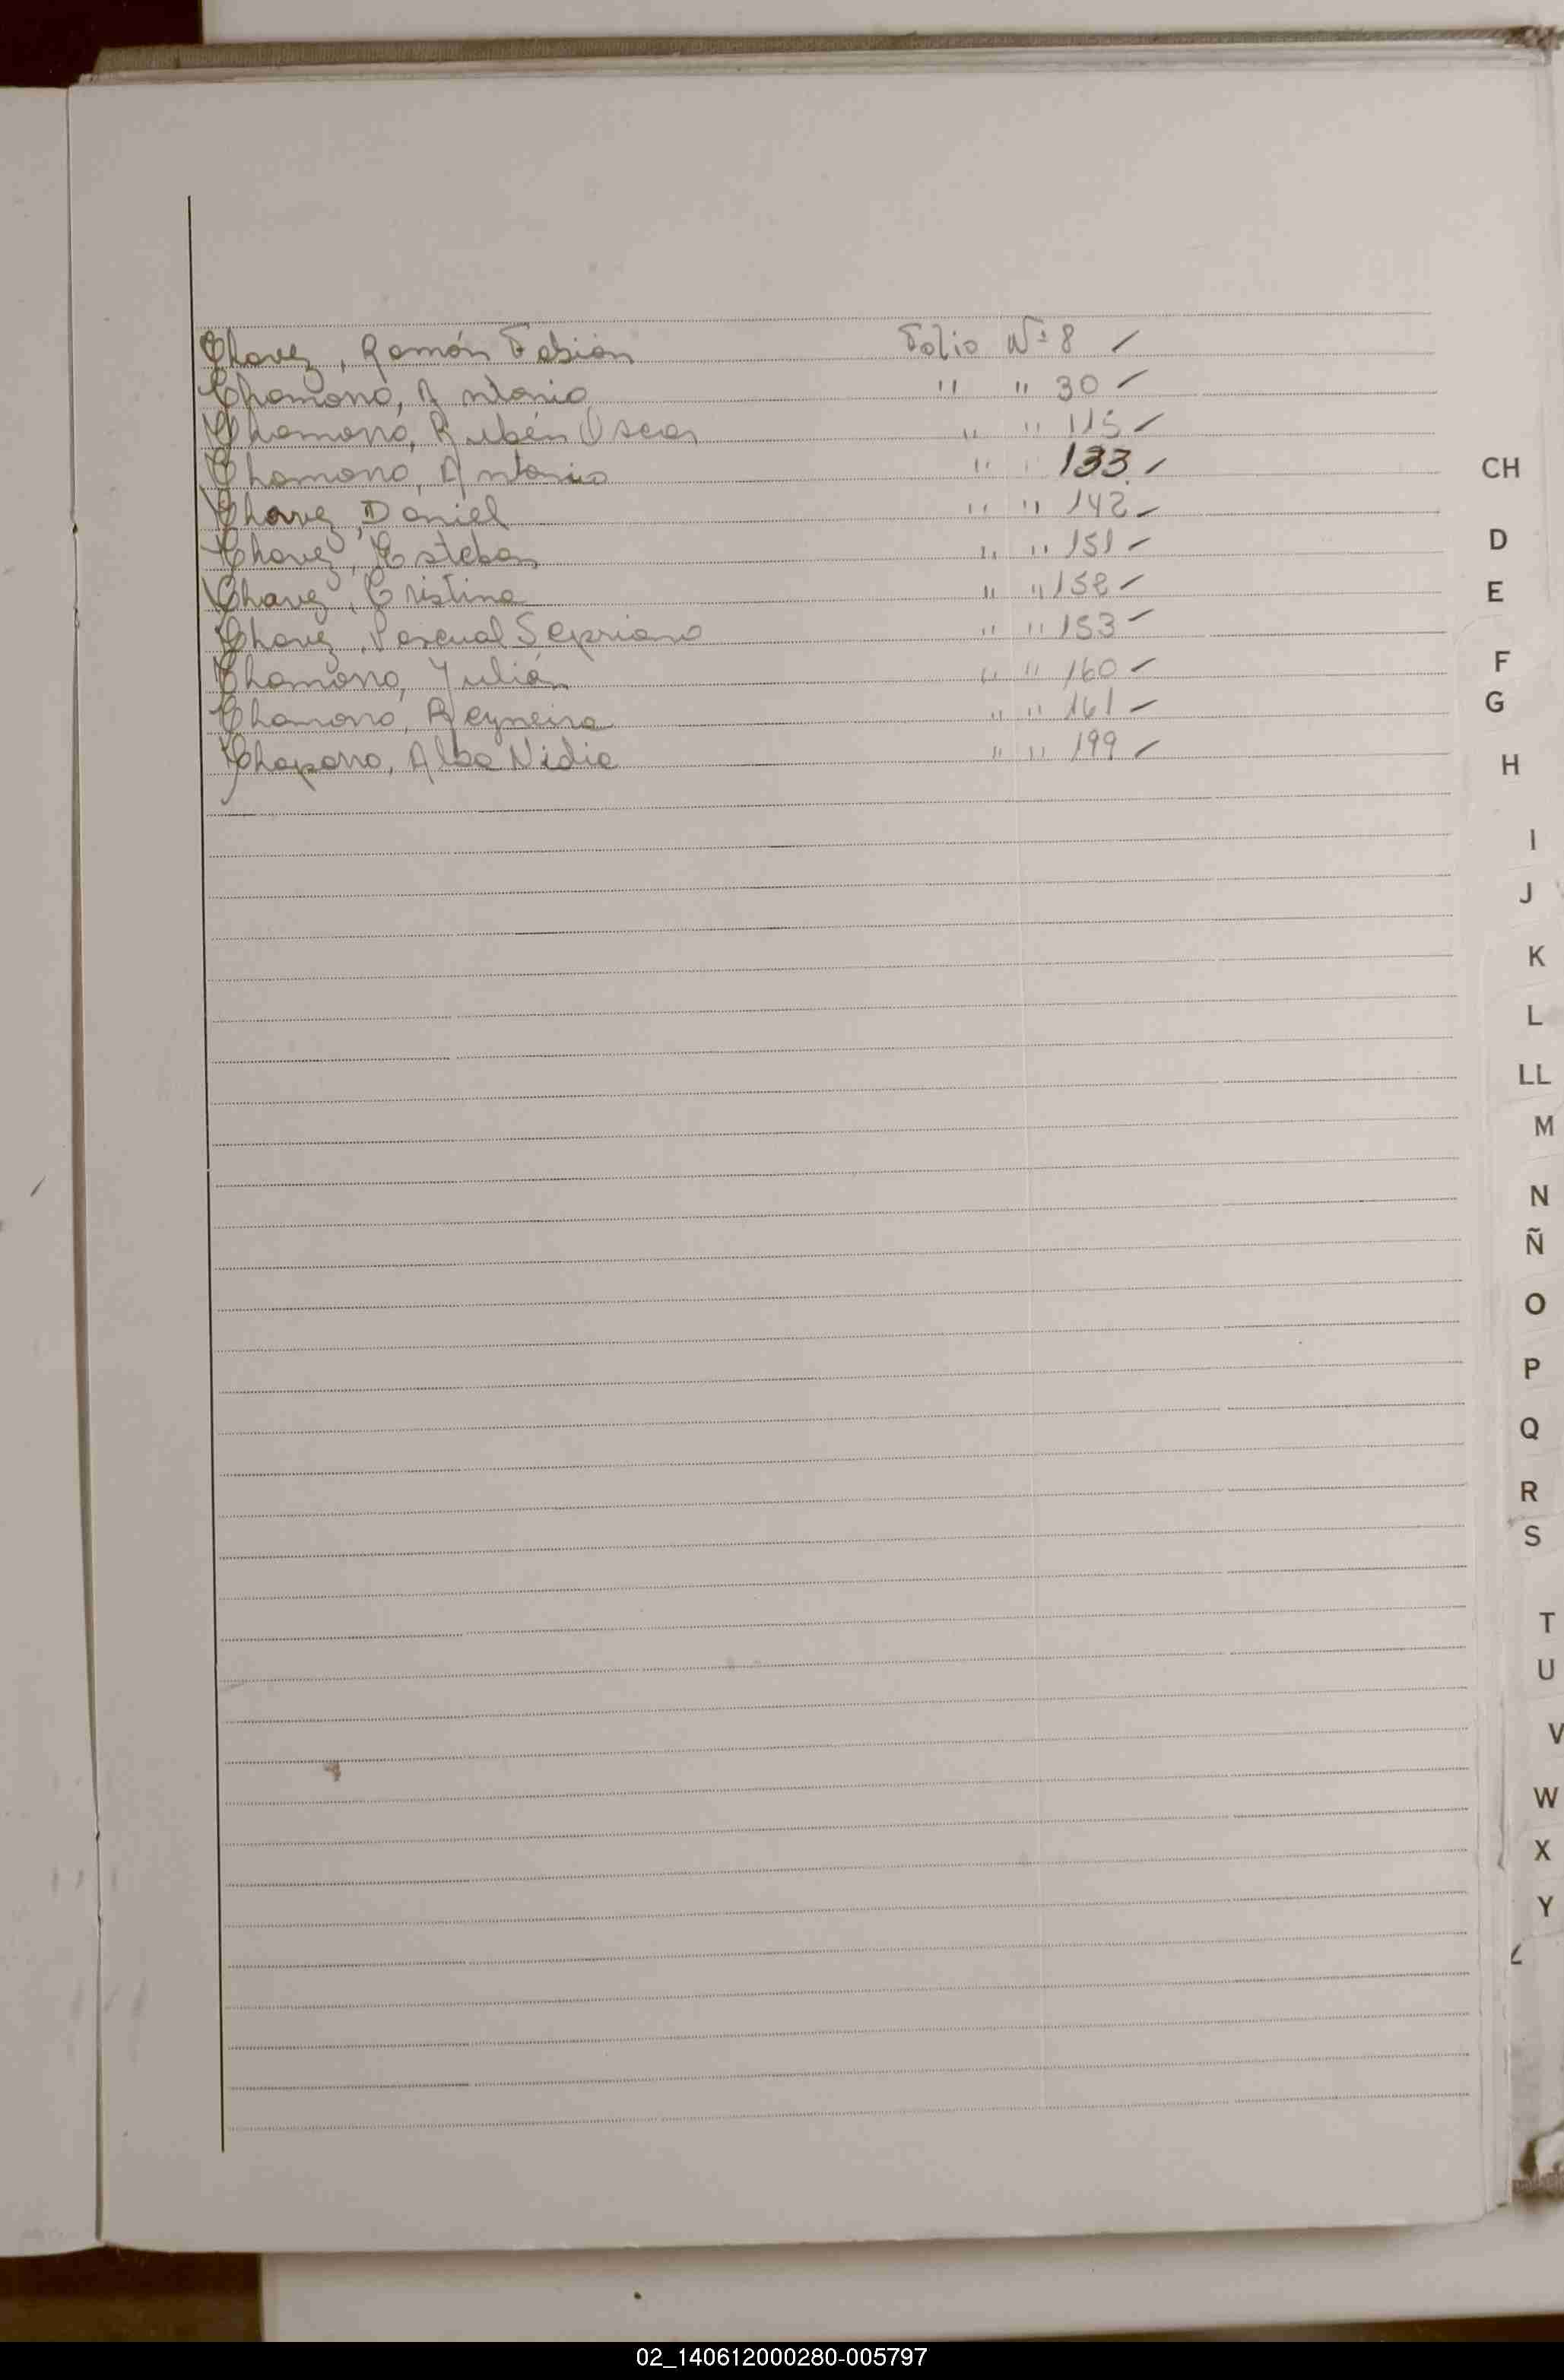 Chavez, Ramón Fabián Folio Nº 8
Chamorro, Antonio " " 30
Chamorro, Rubén Oscar " " 115
Chamorro, Antonio " " 133
Chavez, Daniel " " 142
Chavez, Esteban " " 151
Chavez, Cristina " " 152
Chavez, Pascual Sepriano " " 153
Chamorro, Julián " " 160
Chamorro, Reyneiro " " 161
Chaparro, Alba Nidia " " 199
CH
D
E
F
G
H
I
J
K
L
LL
M
N
Ñ
O
P
Q
R
S
T
U
V
W
X
Y
02_140612000280-005797